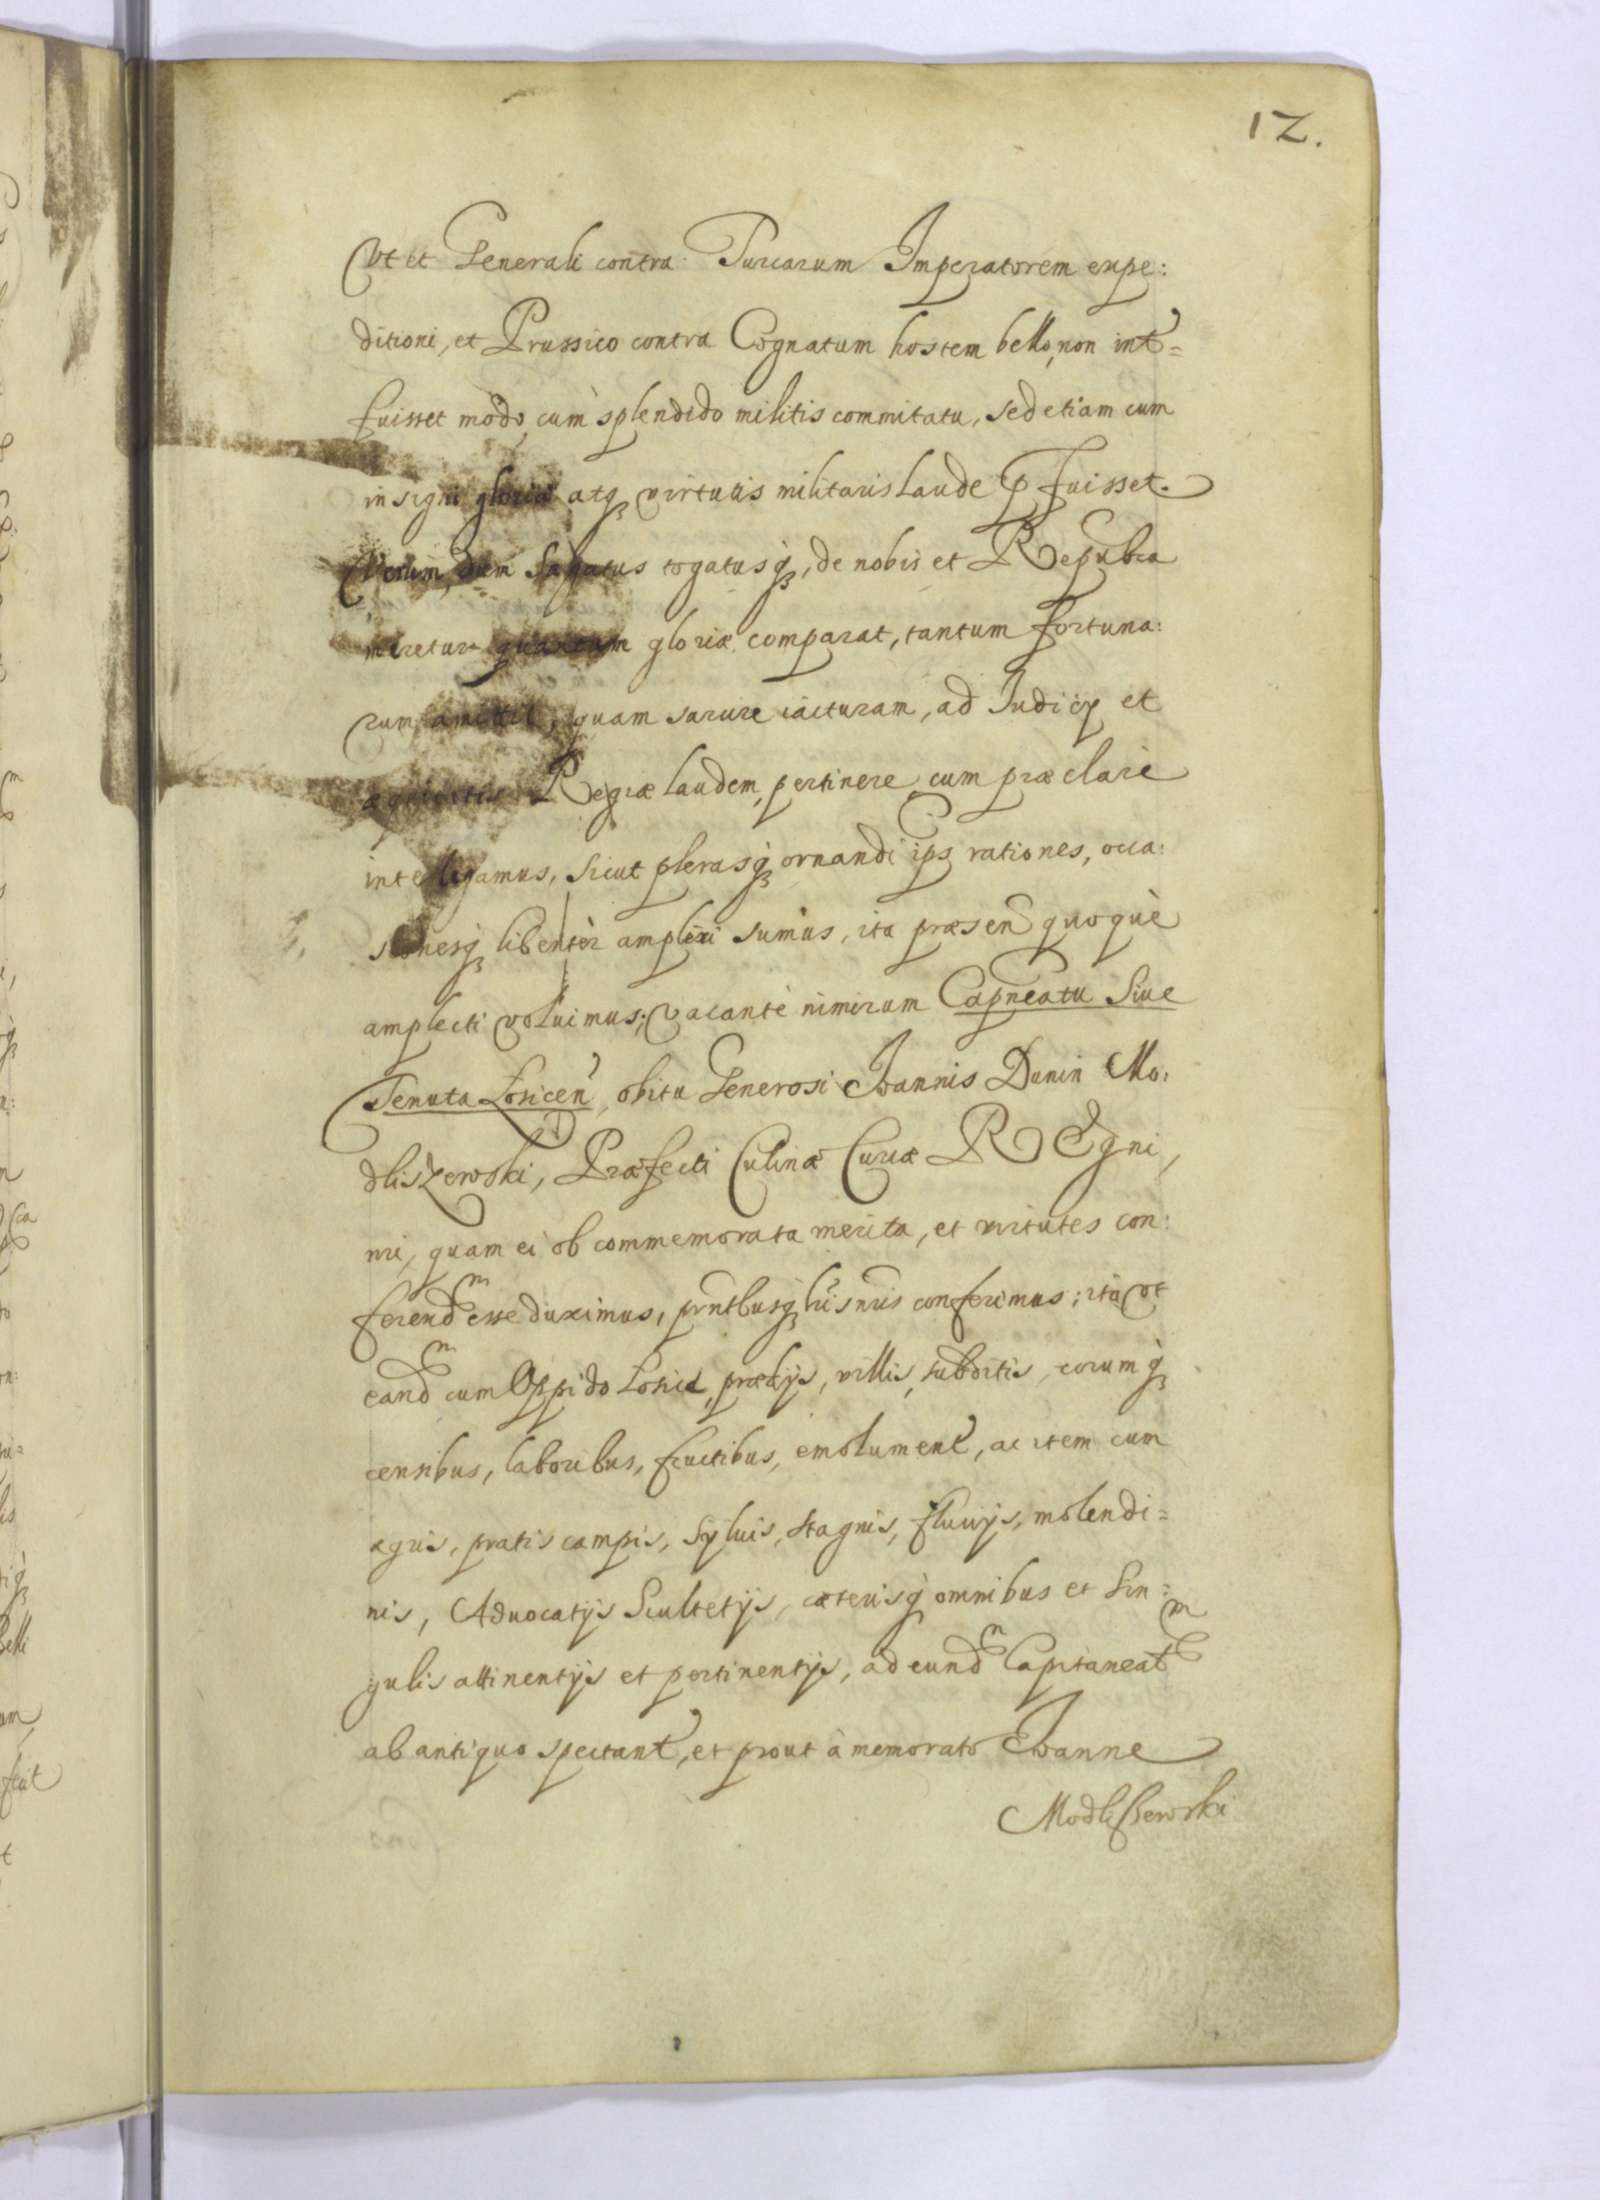 12.
Vt et Generali contra Turcarum Imperatorem expe:
ditioni, et Prussico contra Cognatum hostem bello, non int=
fuisset modo, cum splendido militis commitatu, sed etiam cum
insigni gloria atq3 virtutis militaris laude p fuisset.
Verum, dum Sagatus togatusq3, de nobis et Republca
meretur quantum gloriæ comparat, tantum fortuna:
rum amittit, quam sarcire iacturam, ad Iudicy et
æquitatis Regiæ laudem, pertinere, cum præclarè
intelligamus, Sicut plerasq3 ornandi ips rationes, occa:
sionesq3 libentèr amplexi sumus, ita præsen quoquè
amplecti voluimus; vacante nimirum Capneatu Siue
Tenuta Losicen, obitu Generosi Ioannis Dunin Mo:
dliszewski, Præfecti Culinæ Curiæ REgni,
nri, quam ei ob commemorata merita, et virtutes con:
ferend esse duximus, prntbusq3 lris nris conferimus; ita vt
eand cum Oppido Losice, prædijs, villis, subditis, eorumq3
censibus, laboribus, fructibus, emolument, ac item cum
agris, pratis campis, Syluis, stagnis, fluuijs, molendi=
nis, Aduocatijs Scultetijs, cæterisq3 omnibus et Sin=
gulis attinentijs et pertinentijs, ad eund Capitaneat
ab antiquo spectant, et prout à memorato Ioanne
Modlißewski